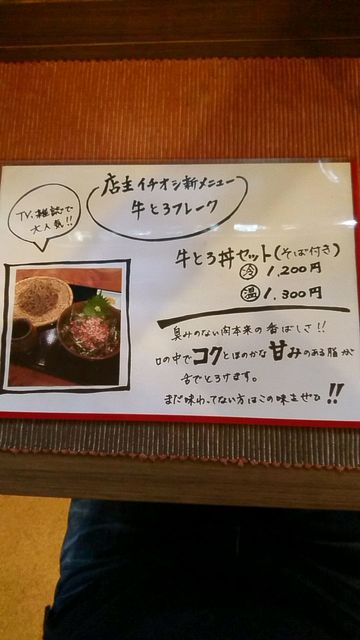 TV、雑誌で
大人気!!
店主イチオシ新メニュー
牛とろフレーク
牛とろ丼セット(そば付き)
冷 1,200円
温 1,300円
臭みのない肉本来の香ばしさ!!
口の中でコクとほのかな甘みのある脂が
舌でとろけます。
まだ味わってない方はこの味ぜひ!!